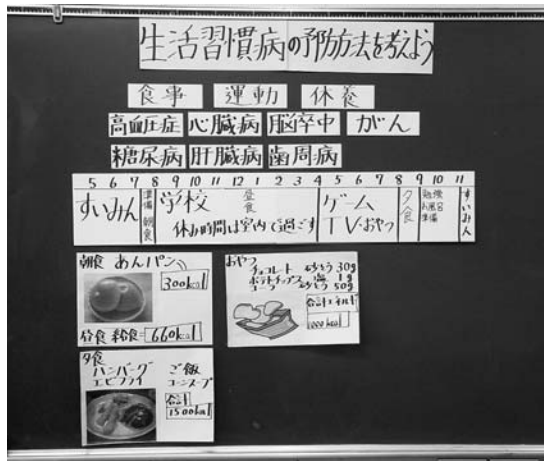 生活習慣病の予防方法を考えよう
食事 運動 休養
高血圧症 心臓病 脳卒中 がん
糖尿病 肝臓病 歯周病
5 6 7 8 9 10 11 12 1 2 3 4 5 6 7 8 9 10 11
すいみん 準備 朝食 学校 昼食 休み時間は室内で過ごす ゲーム TV・おやつ 夕食 勉強 お風呂 準備 すいみん
朝食 あんパン
300kcal
昼食 給食=660kcal
おやつ
チョコレート さとう 30g
ポテトチップス 塩 1g
コーラ さとう 50g
合計エネルギー
1000kcal
夕食
ハンバーグ ご飯
エビフライ コーンスープ
合計
1500kcal